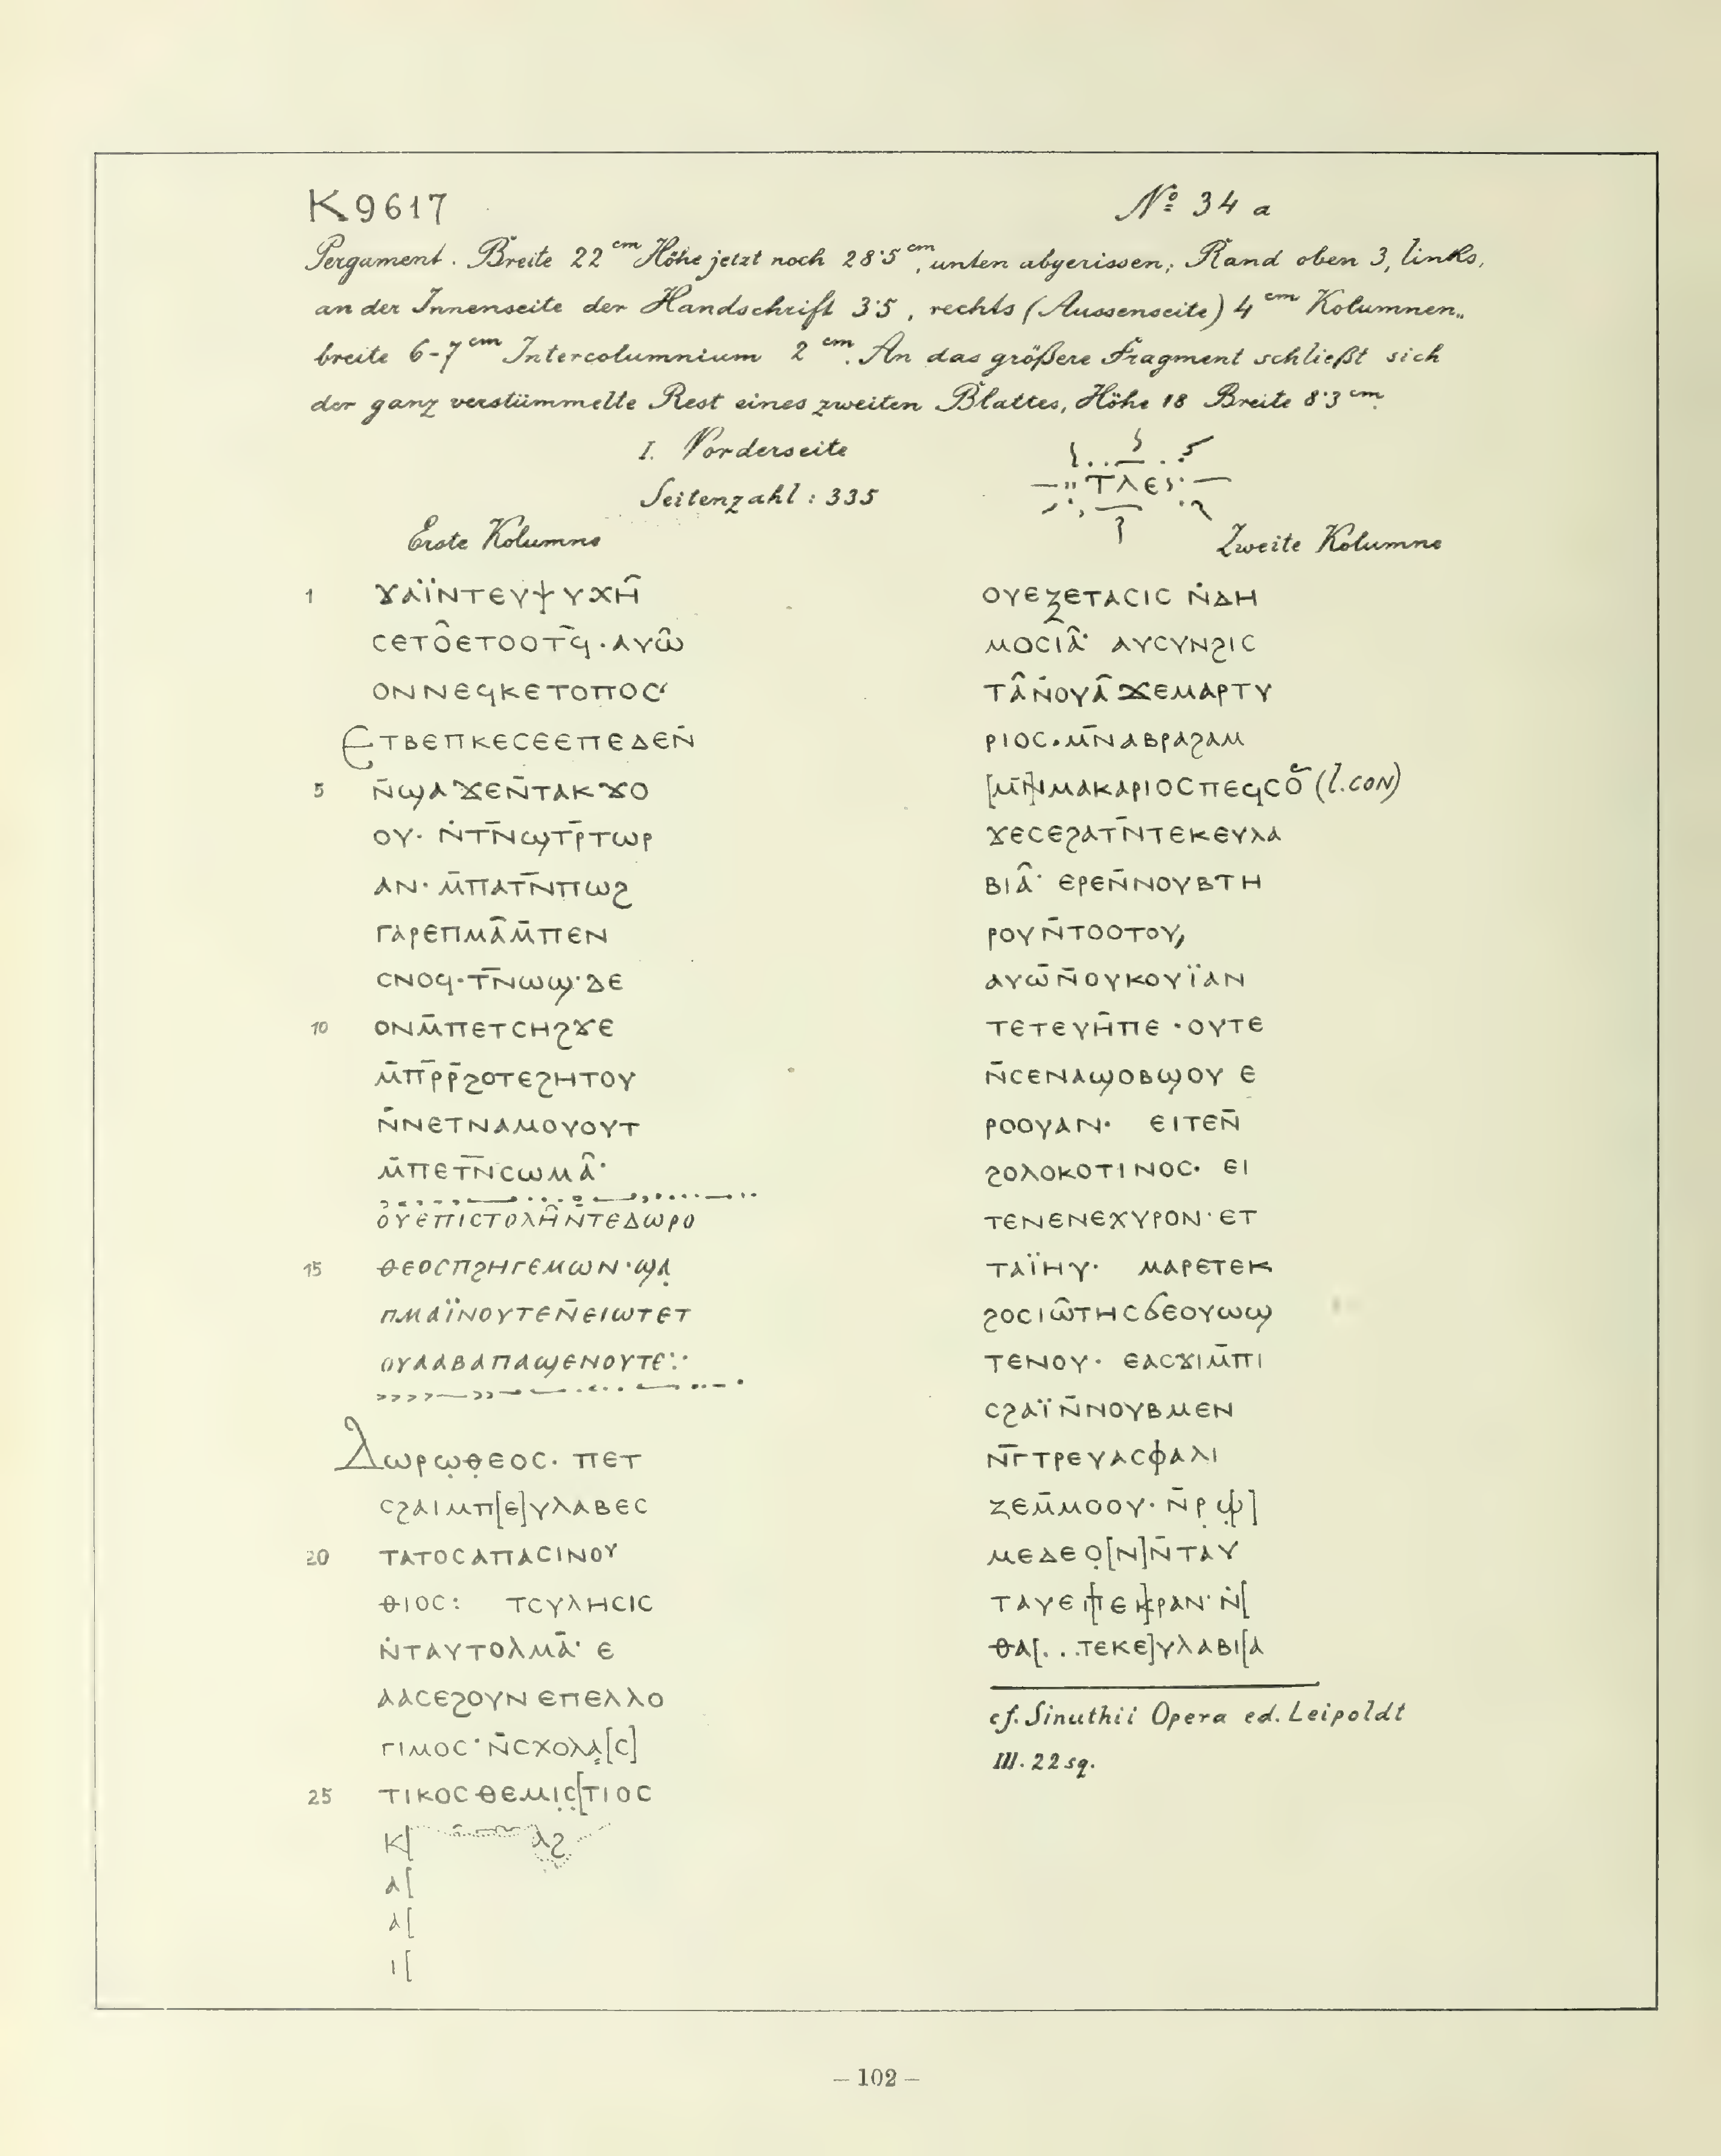 K 9617
№ 34 a
Pergament. Breite 22 cm Höhe jetzt noch 28·5 cm, unten abgerissen; Rand oben 3, links,
an der Innenseite der Handschrift 3·5, rechts (Aussenseite) 4 cm Kolumnen-
breite 6-7 cm Intercolumnium 2 cm. An das größere Fragment schließt sich
der ganz verstümmelte Rest eines zweiten Blattes, Höhe 18 Breite 8·3 cm
I. Vorderseite
Seitenzahl: 335
ⲦⲖⲈ
Erste Kolumne
1 ϫⲁⲓ̈ⲛⲧⲉⲩⲯⲩⲭⲏ̂
ⲥⲉⲧⲟ̂ⲉⲧⲟⲟⲧϥ̄·ⲁⲩⲱ̂
ⲟⲛⲛⲉϥⲕⲉⲧⲟⲡⲟⲥ‘
Ⲉⲧⲃⲉⲡⲕⲉⲥⲉⲉⲡⲉⲇⲉⲛ̄
5 ⲛ̄ϣⲁϫⲉⲛ̄ⲧⲁⲕϫⲟ
ⲟⲩ· ⲛ̇ⲧⲛ̄ϣⲧⲣ̄ⲧⲱⲣ
ⲁⲛ· ⲙ̄ⲡⲁⲧⲛ̄ⲡⲱϩ
ⲅⲁⲣⲉⲡⲙⲁ̂ⲙ̄ⲡⲉⲛ
ⲥⲛⲟϥ·ⲧⲛ̄ⲱϣ·ⲇⲉ
10 ⲟⲛⲙ̄ⲡⲉⲧⲥⲏϩϫⲉ
ⲙ̄ⲡⲣ̄ⲣ̄ϩⲟⲧⲉϩⲏⲧⲟⲩ
ⲛ̄ⲛⲉⲧⲛⲁⲙⲟⲩⲟⲩⲧ
ⲙ̄ⲡⲉⲧⲛ̄ⲥⲱⲙⲁ̂·
ⲟⲩⲉⲡⲓⲥⲧⲟⲗⲏ̂ⲛ̄ⲧⲉⲇⲱⲣⲟ
15 ⲑⲉⲟⲥⲡϩⲏⲅⲉⲙⲱⲛ·ϣⲁ̣
ⲡⲙⲁⲓ̈ⲛⲟⲩⲧⲉⲛ̄ⲉⲓⲱⲧⲉⲧ
ⲟⲩⲁⲁⲃⲁⲡⲁϣⲉⲛⲟⲩⲧⲉ⁖
Ⲇⲱⲣⲱ̣ⲑ̣ⲉⲟⲥ· ⲡⲉⲧ
ⲥϩⲁⲓⲙⲡ[ⲉ]ⲩⲗⲁⲃⲉⲥ
20 ⲧⲁⲧⲟⲥⲁⲡⲁⲥⲓⲛⲟⲩ
ⲑⲓⲟⲥ: ⲧⲥⲩⲗⲏⲥⲓⲥ
ⲛ̇ⲧⲁⲩⲧⲟⲗⲙⲁ̄· ⲉ
ⲁⲁⲥⲉϩⲟⲩⲛ ⲉⲡⲉⲗⲗⲟ
ⲅⲓⲙⲟⲥ·ⲛ̄ⲥⲭⲟⲗⲁ̣[ⲥ]
25 ⲧⲓⲕⲟⲥⲑⲉⲙⲓ̣ⲥ̣[ⲧⲓⲟⲥ
ⲕ[ ⲁϩ
ⲁ[
ⲁ[
ⲓ[
Zweite Kolumne
ⲟⲩⲉⲝⲉⲧⲁⲥⲓⲥ ⲛ̇ⲇⲏ
ⲙⲟⲥⲓⲁ̂· ⲁⲩⲥⲩⲛϩⲓⲥ
ⲧⲁ̂ⲛ̇ⲟⲩⲁ̂ϫⲉⲙⲁⲣⲧⲩ
ⲣⲓⲟⲥ·ⲙⲛ̄ⲁⲃⲣⲁϩⲁⲙ
[ⲙⲛ̄]ⲙⲁⲕⲁⲣⲓⲟⲥⲡⲉϥⲥⲟ̄ (l. ⲥⲟⲛ)
ϫⲉⲥⲉϩⲁⲧⲛ̄ⲧⲉⲕⲉⲩⲗⲁ
ⲃⲓⲁ̂· ⲉⲣⲉⲛ̄ⲛⲟⲩⲃⲧⲏ
ⲣⲟⲩⲛ̄ⲧⲟⲟⲧⲟⲩ,
ⲁⲩⲱ̄ⲛ̄ⲟⲩⲕⲟⲩⲓ̈ⲁⲛ
ⲧⲉⲧⲉⲩⲏ̂ⲡⲉ·ⲟⲩⲧⲉ
ⲛ̄ⲥⲉⲛⲁϣⲟⲃϣⲟⲩ ⲉ
ⲣⲟⲟⲩⲁⲛ· ⲉⲓⲧⲉⲛ̄
ϩⲟⲗⲟⲕⲟⲧⲓⲛⲟⲥ· ⲉⲓ
ⲧⲉⲛⲉⲛⲉⲭⲩⲣⲟⲛ·ⲉⲧ
ⲧⲁⲓ̈ⲏⲩ· ⲙⲁⲣⲉⲧⲉⲕ
ϩⲟⲥⲓⲱ̂ⲧⲏⲥϭⲉⲟⲩⲱϣ
ⲧⲉⲛⲟⲩ· ⲉⲁⲥϫⲓⲙ̄ⲡⲓ
ⲥϩⲁⲓ̈ⲛ̄ⲛⲟⲩⲃⲙⲉⲛ
ⲛⲅ̄ⲧⲣⲉⲩⲁⲥⲫⲁⲗⲓ
ⲍⲉⲙ̄ⲙⲟⲟⲩ·ⲛ̄ⲣ̣ⲯ̣]
ⲙⲉⲇⲉⲟ̣[ⲛ]ⲛ̄ⲧⲁⲩ
ⲧⲁⲩⲉⲡ[ⲉⲕ]ⲣⲁⲛ·ⲛ̇[
ⲑⲁ[...ⲧⲉⲕⲉ]ⲩⲗⲁⲃⲓ[ⲁ
cf. Sinuthii Opera ed. Leipoldt
III. 22 sq.
– 102 –